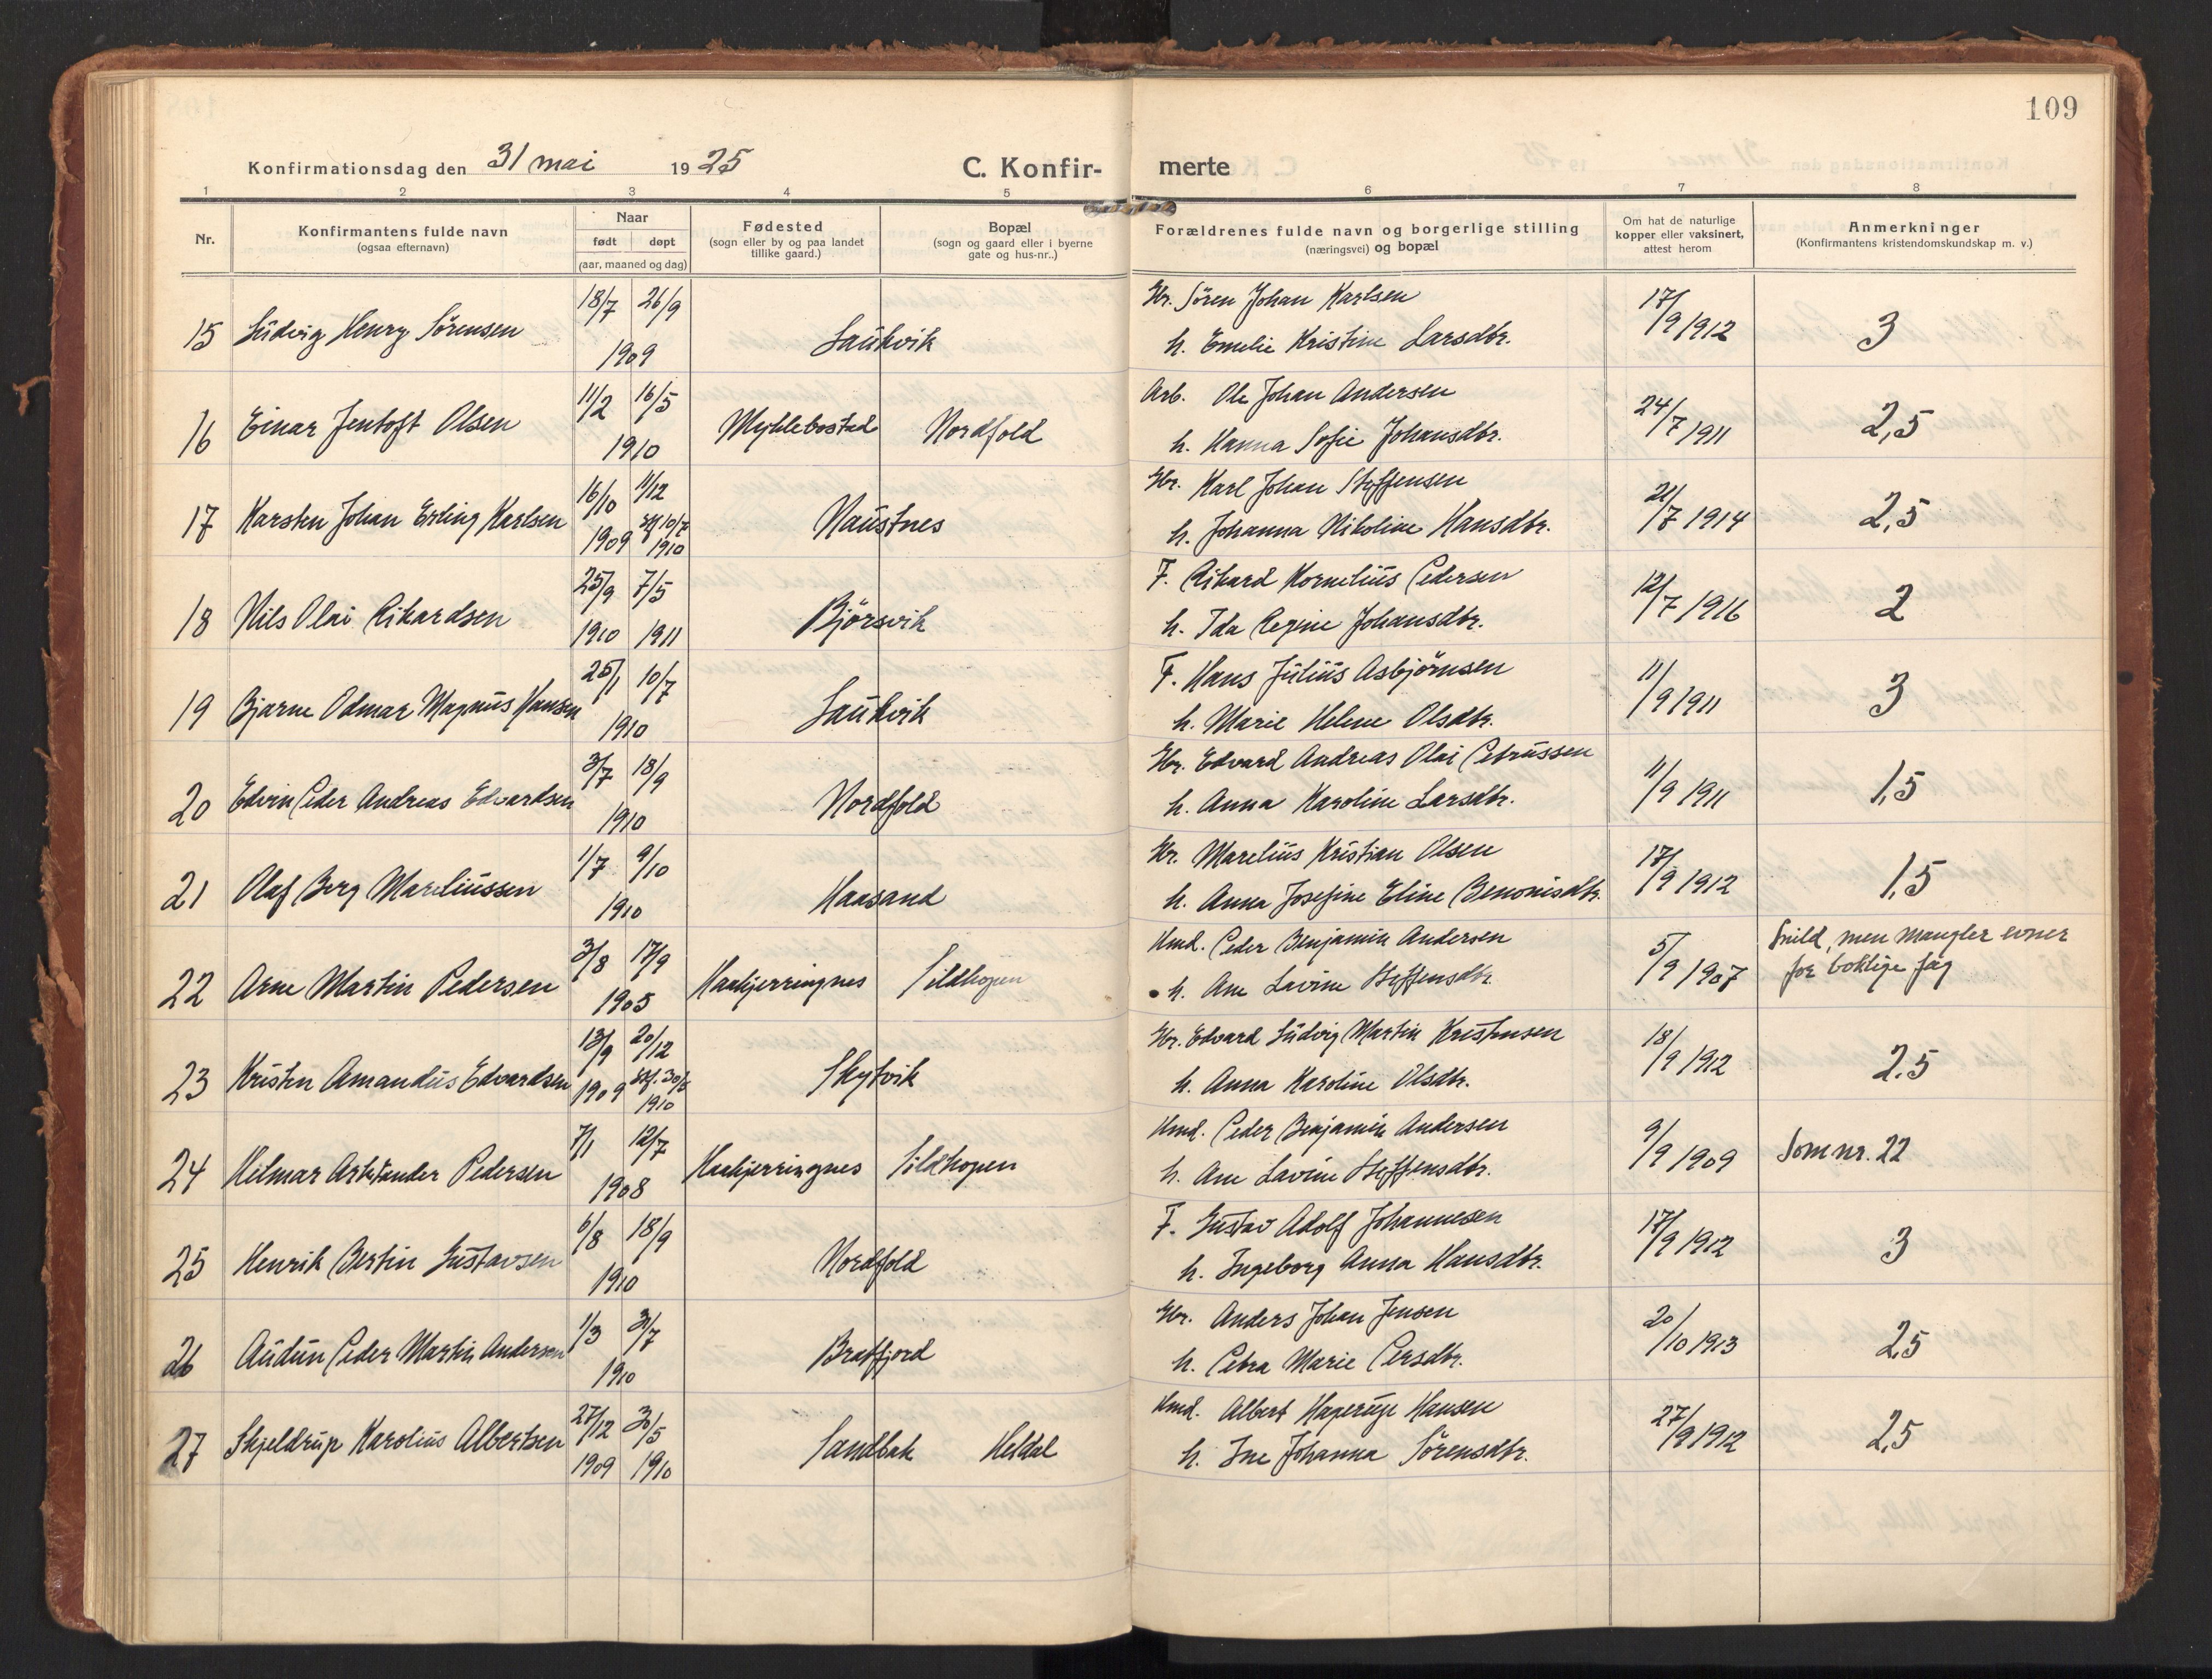 109
Konfirmationsdag den 31 mai 1925 C. Konfir- merte
1 2 3 4 5 6 7 8
Nr.
Konfirmantens fulde navn
(ogsaa efternavn)
Naar
født døpt
(aar, maaned og dag)
Fødested
(sogn eller by og paa landet
tillike gaard.)
Bopæl
(sogn og gaard eller i byerne
gate og hus-nr..)
Forældrenes fulde navn og borgerlige stilling
(næringsvei) og bopæl
Om hat de naturlige
kopper eller vaksinert,
attest herom
Anmerkninger
(Konfirmantens kristendomskundskap m. v.)
18/7 26/9 Gbr. Sören Johan Karlsen 17/9 1912
15 Ludvig Henry Sörensen 1909 Saukvik h. Emelie Kristine Larsdtr. 3
11/2 16/5 Arb. Ole Johan Andersen 24/7 1911
16 Einar Jentoft Olsen 1910 Myklebostad Nordfold h. Hanna Sofie Johansdtr. 2,5
16/10 11/12 Gbr. Karl Johan Steffensen 21/7 1914
17 Karsten Johan Erling Karlsen 1909 stf 10/7 1910 Naustnes h. Johanna Nikoline Hansdtr. 2,5
25/9 7/5 F. Rikard Kornelius Pedersen 12/7 1916
18 Nils Olai Rikardsen 1910 1911 Björsvik h. Ida Regine Johansdtr. 2
25/1 10/7 F. Hans Julius Asbjörnsen 11/9 1911
19 Bjarne Odmar Magnus Hansen 1910 Saukvik h. Marie Helene Olsdtr. 3
3/7 18/9 Gbr. Edvard Andreas Olai Petrussen 11/9 1911
20 Edvin Peder Andreas Edvardsen 1910 Nordfold h. Anna Karoline Larsdtr. 1,5
1/7 9/10 Gbr. Marelius Kristian Olsen 17/9 1912
21 Olaf Berg Mareliussen 1910 Haasand h. Anna Josefine Eline Benonisdtr. 1,5
3/8 17/9 Kmd. Peder Benjamin Andersen 5/9 1907 Snild, men mangler evner
22 Arne Martin Pedersen 1905 Haakjerringnes Sildhopen h. Ane Lavine Steffensdtr. for boklige fag
13/9 20/12 Gbr. Edvard Ludvig Martin Kristensen 18/9 1912
23 Kristen Amandus Edvardsen 1909 stf. 30/6 1910 Skytvik h. Anna Karoline Olsdtr. 2.5
7/1 12/7 Kmd. Peder Benjamin Andersen 9/9 1909
24 Hilmar Arktander Pedersen 1908 Haakjerringnes Sildhopen h. Ane Lavine Steffensdtr. Som nr. 22
6/8 18/9 F. Gustav Adolf Johannesen 17/9 1912
25 Henrik Bertin Gustavsen 1910 Nordfold h. Ingeborg Anna Hansdtr. 3
1/3 31/7 Gbr. Anders Johan Jensen 20/10 1913
26 Audun Peder Martin Andersen 1910 Bratfjord h. Petra Marie Persdtr. 2,5
27/12 30/5 Kmd. Albert Hagerup Hansen 27/9 1912
27 Skjeldrup Karolius Albertsen 1909 1910 Sandbak Heldal h. Ine Johanna Sörensdtr. 2,5